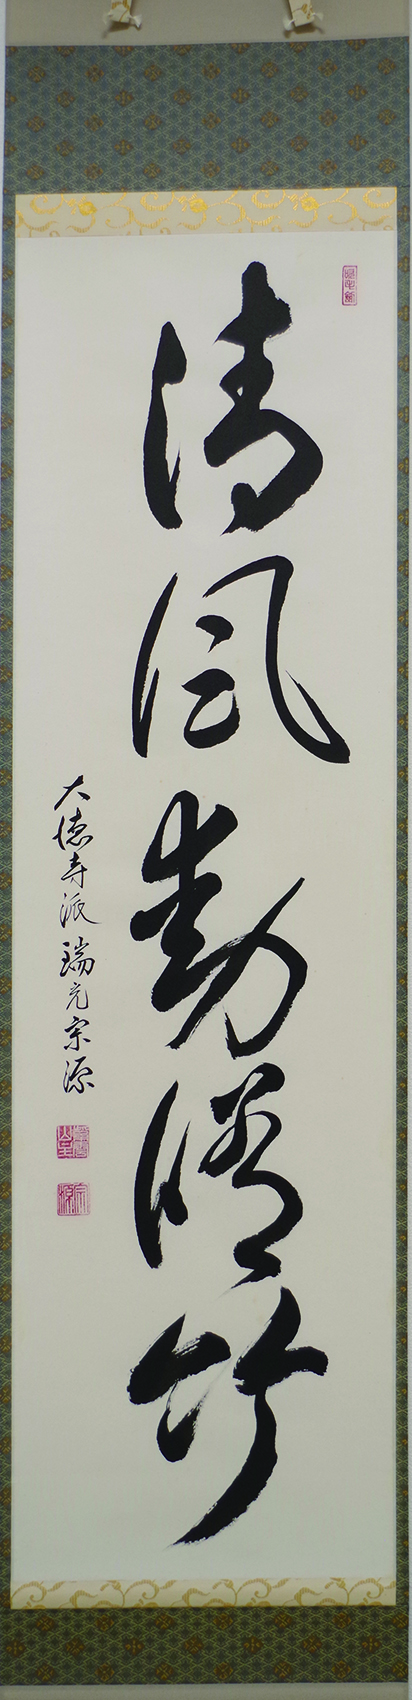 清風動脩竹
大徳寺派瑞光宗源